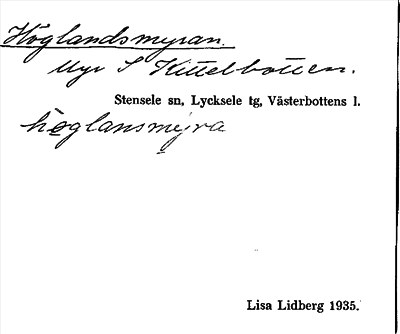 Höglandsmyran.
Myr S Kittelbotten.
Stensele sn, Lycksele tg, Västerbottens l.
höglansmyra
Lisa Lidberg 1935.